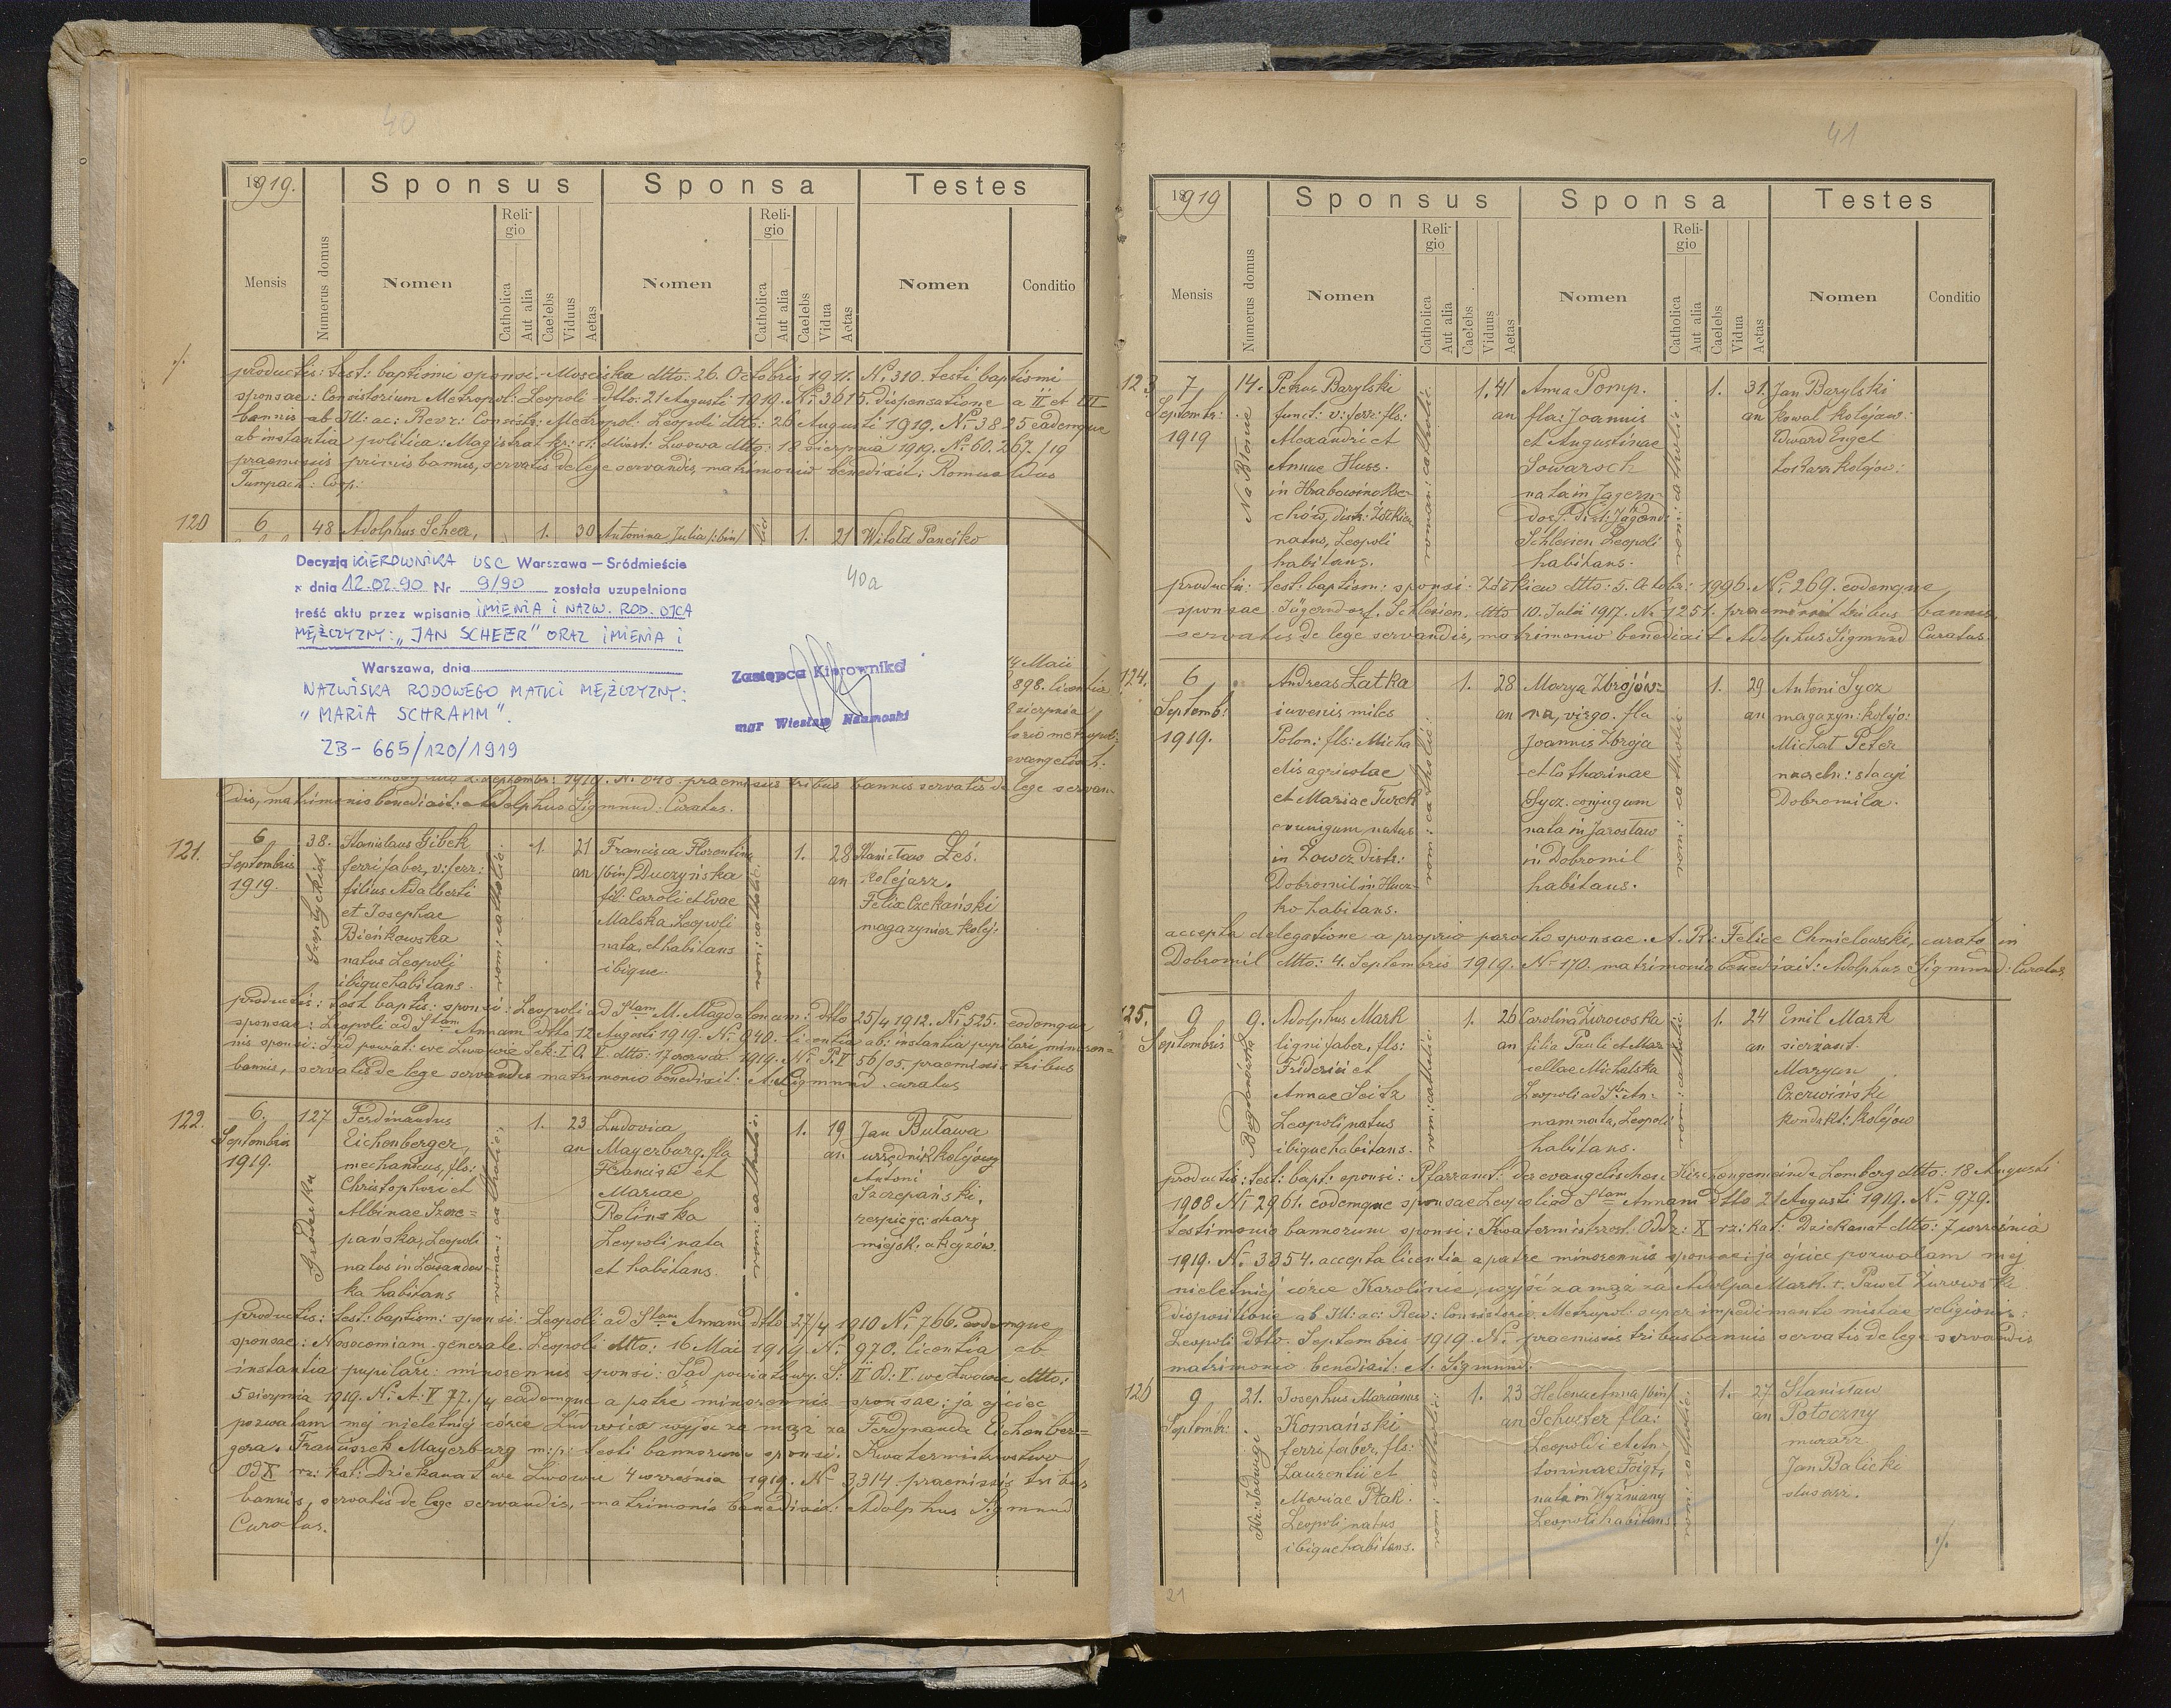 40
1919.
Sponsus
Sponsa
Testes
Mensis
Numerus domus
Nomen
Religio
Catholica
Aut alia
Caelebs
Viduus
Aetas
Nomen
Religio
Catholica
Aut alia
Caelebs
Vidua
Aetas
Nomen
Conditio
productis: test: baptismi sponsi: Mosciska dtto: 26. Octobris 1911. N: 310. testi baptismi
sponsae: Consistorium Metropol: Leopoli dtto: 21 Augusti 1919. N: 3615. dispensatione a II et III
bannis ab Ill: ac: Revr: Consist: Metropol: Leopoli dtto: 26 Augusti 1919. N: 3825 eademque
ab instantia politica: Magistrat kr: st: miast: Lwowa dtto: 18 sierpnia 1919. N: 60.267/19
praemissis primis bannis, servatis de lege servandis, matrimonio benedixit: Romualdus
Tumpach: Coop:
120
6
48
Adolphus Scheer,
1.
30
Antonina Julia /:bin/
1.
21
Witold Panciko
Decyzją KIEROWNIKA USC Warszawa – Śródmieście
x dnia 12.02.90 Nr 9/90 została uzupełniona
treść aktu przez wpisanie IMIENIA I NAZW. ROD. OJCA
MĘŻCZYZNY: „JAN SCHEER" ORAZ IMIENIA I
Warszawa, dnia
NAZWISKA RODOWEGO MATKI MĘŻCZYZNY:
„MARIA SCHRAMM".
ZB-665/120/1919
40a
Zastępca Kierownika
mgr Wiesław
14 Maii
898. licentia
8 sierpnia
evangelisch:
2. Septembr: 1919. N: 848. praemissis tribus bannis servatis de lege servan-
dis, matrimonio benedixit: Adolphus Sigmund: Curatus.
121.
6
Septembris
1919.
38.
Szeptyckich
Stanislaus Gibek
ferrifaber, v: ferr:
filius Adalberti
et Josephae
Bieńkowska
natus Leopoli
ibique habitans.
rom: catholic:
1.
21
an
Francisca Florentina
/bin/ Duczyńska
fil: Caroli et Evae
Malska Leopoli
nata, et habitans
ibique.
rom: catholic:
1.
28
an
Stanisław Leś.
kolejarz.
Felix Czekański
magazynier kolej:
productis: test baptis: sponsi: Leopoli ad Stam M. Magdalenam: dtto 25/4 1912. N: 525. eodemque
sponsae: Leopoli ad Stam Annam dtto 12 Augusti 1919. N: 940. licentia ab: instantia pupilari minoren-
nis sponsi: Sąd powiat: we Lwowie Sek: I O. V. dtto: 17 czerwca 1919. N: P. V 56/05. praemissis tribus
bannis, servatis de lege servandis matrimonio benedixit: A. Sigmund. curatus
122.
6.
Septembris
1919.
127
Gródecka
Ferdinandus
Eichenberger,
mechanicus, fls:
Christophori et
Albinae Szcze=
pańska, Leopoli
natus in Lewandow
ka habitans
roman: catholic:
1.
23
an
Ludovica
Mayerburg. fla
Francisci et
Mariae
Rolinska
Leopoli nata
et habitans.
rom: catholic:
1.
19
an
Jan Buława
urzędnik kolejowy
Antoni
Szczepański.
miejsk. akcyzów.
productis: test: baptism: sponsi: Leopoli ad Stam Annam dtto 27/4 1910 N: 766. eodemque
sponsae: Nosocomiam generale. Leopoli dtto: 16 Mai 1919 N: 970. licentia ab
instantia pupilari: minorennis sponsi: Sąd powiatowy. S: II Od: V. we Lwowie dtto:
5 sierpnia 1919. N: A. V 77./4 eademque a patre minorennis sponsae: ja ojciec
pozwalam mej nieletniej córce Ludwice wyjść za mąż za Ferdynanda Eichenber=
gera. Franciszek Mayerburg m:p: testi bannorum sponsi: Kwatermistrzostwo
Od X rz: kat: Dziekanat we Lwowie 4 września 1919. N: 3314. praemissis tribus
bannis, servatis de lege servandis, matrimonio benedixit: Adolphus Sigmund
Curatus.
41
1919
Sponsus
Sponsa
Testes
Mensis
Numerus domus
Nomen
Religio
Catholica
Aut alia
Caelebs
Viduus
Aetas
Nomen
Religio
Catholica
Aut alia
Caelebs
Vidua
Aetas
Nomen
Conditio
123
7
Septembr:
1919
14.
Na Błonie
Petrus Barylski
funct: v: ferr: fls:
Alexandri et
Annae Huss.
in Hrabowino Kre-
chów, distr: Żółkiew
natus, Leopoli
habitans.
roman: catholic:
1.
41
an
Anna Pomp.
fla: Joannis
et Augustinae
Sowarsch
nata in Jägern-
dorf. Dist: Jägernd:
Schlesien Leopoli
habitans.
rom: catholic:
1.
31.
an
Jan Barylski
kowal kolejow:
Edward Engel
kolejow:
productis: test: baptism: sponsi: Żółkiew dtto: 5. Octobr: 1996. N: 269. eodemque
sponsae Jägerndorf. Schlesien. dtto 10. Julii 1917. N: 1251. praemissis tribus bannis,
servatis de lege servandis, matrimonio benedixit Adolphus Sigmund Curatus.
124.
6
Septemb:
1919.
Andreas Łatka
iuvenis miles
Polon: fls: Micha
elis agricolae
et Mariae Turek
coniugum natus
in Łowcz Distr:
Dobromil in Hucz-
ko habitans.
rom: catholic:
1.
28
an
Marya Zbrojów-
na, virgo. fla
Joannis Zbroja
et Catharinae
Sycz. conjugum
nata in Jarosław
in Dobromil
habitans.
rom: catholic:
1.
29
an
Antoni Sycz
magazyn: kolejo:
Michał Peter
naczeln: stacji
Dobromila.
accepta delegatione a proprio parocho sponsae. A. R: Felice Chmielowski, curato in
Dobromil dtto: 4. Septembris 1919. N: 170. matrimonio benedixit: Adolphus Sigmund: Curatus.
125.
9
Septembris
9.
Bogdanówka
Adolphus Mark
lignifaber, fls:
Friderici et
Annae Seitz
Leopoli natus
ibique habitans.
rom: catholic:
1.
26
an
Carolina Żurowska
filia Pauli et Mar-
cellae Michalska
Leopoli ad Stm An-
nam nata, Leopoli
habitans.
rom: catholic:
1.
24
an
Emil Mark
sierżant.
Maryan
Czerwiński
kondukt: kolejow
productis: test: bapt: sponsi: Pfarramt: der evangelischen Kirchengemeinde Lemberg dtto: 18 Augusti
1908 N: 2961. eodemque sponsae Leopoli ad Stam Annam dtto 21 Augusti 1919. N: 979.
testimonio bannorum sponsi: Kwatermistrzost: Odz: X rz: kat: Dziekanat dtto: 7 września
1919. N: 3354. accepta licentia a patre minorennis sponsae: ja ojciec pozwalam mej
nieletniej córce Karolinie, wyjść za mąż za Adolpa Mark. r. Paweł Żurowski
dispositione ab Ill: ac: Rew: Consistorio. Metropol: super impedimento mixtae religionis:
Leopoli dtto. Septembris 1919. N: praemissis tribus bannis servatis de lege servandis
matrimonio benedixit: A. Sigmund.
126
9
Septembr:
21.
Kr: Jadwigi
Josephus Marianus
Komański
ferrifaber, fls:
Laurentii et
Mariae Ptak.
Leopoli natus
ibique habitans.
rom: catholic:
1.
23
an
Helena Anna /bin/
Schuster fla:
Leopoldi et An-
toninae Foigt,
nata in Wyżniany
Leopoli habitans
rom: catholic:
1.
27
an
Stanisław
Potoczny
murarz
Jan Balicki
slusarz.
21